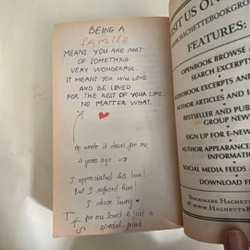 BEING A
Pamela
MEANS YOU ARE PART
OF SOMETHING
VERY WONDERFUL.
IT MEANS YOU WILL LOVE
AND BE LOVED
FOR THE REST OF YOUR LIFE...
NO MATTER WHAT.
He wrote it down for me
4 years ago
I appreciated his love!
But I refused him!
I chose
for me David is just a
special friend
VISIT US ON
WWW.HACHETTEBOOKGRO
FEATURES:
OPENBOOK BROWSE
SEARCH EXCERPTS
AUDIOBOOK EXCERPTS AN
AUTHOR ARTICLES AND I
BESTSELLER AND PUB
GROUP NEWS
SIGN UP FOR E-NEW
AUTHOR APPEARANCE
INFORMATION
SOCIAL MEDIA FEEDS
DOWNLOAD
BOOKMARK HACHET
WWW.HACHETTEB